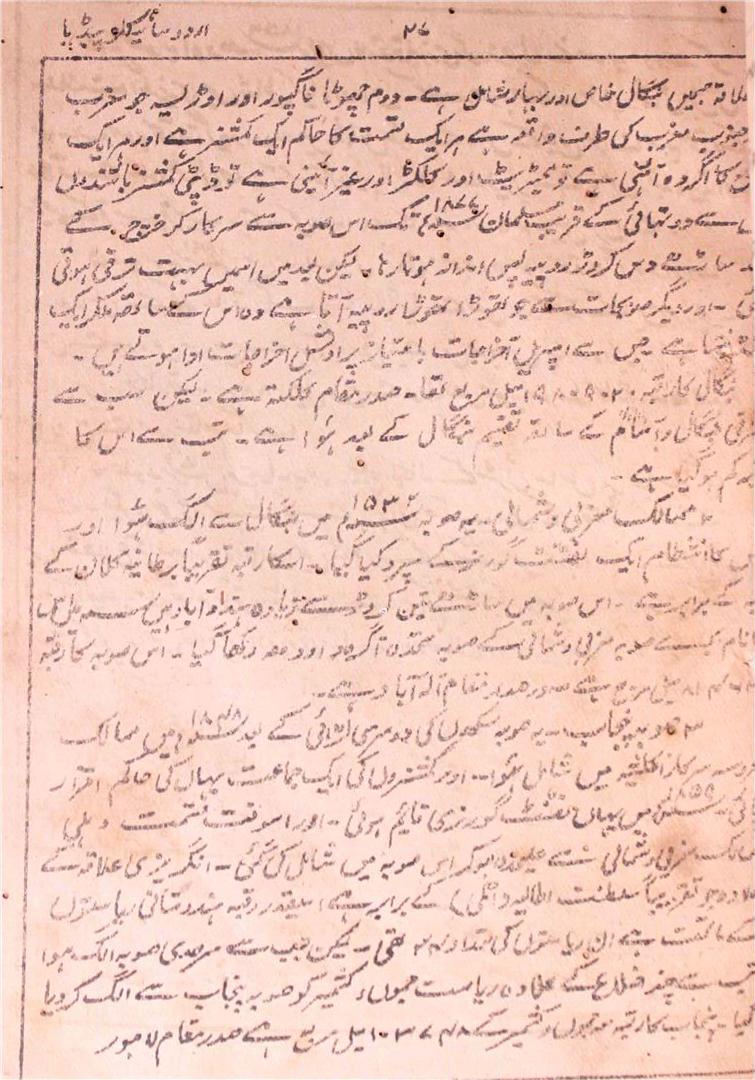 اردو سائیکلوپیڈیا ۲۷
علاقہ جسمیں بنگال خاص اور بہار شامل ہے۔ دوم چھوٹا ناگپور اور اوڑیسہ جو مغرب
جنوب مغرب کی طرف واقع ہے ہر ایک قسمت کا حاکم ایک کمشنر ہے اور ہر ایک
کا اگر وہ آئینی ہے تو مجسٹریٹ اور کلکٹر اور غیر آئینی ہے تو ڈپٹی کمشنر باشندوں
سے دو تہائی کے قریب مسلمان ۱۸۷۶ء تک اس صوبہ سے سرکار کو خرچ کے
ساڑھے دس کروڑ روپیہ پس انداز ہوتا رہا۔ لیکن بعد میں اسمیں بہت ترقی ہوتی
۔ اور دیگر صوبجات سے جو تھوڑا تھوڑا روپیہ آتا ہے وہ اس کے ساتھ ملکر ایک
ہے جس سے امپیریل اخراجات با متیاز پراونشل اخراجات ادا ہوتے ہیں۔
بنگال کا رقبہ میل مربع تھا۔ صدر مقام کلکتہ ہے۔ لیکن سب سے
بنگال و آسام کے ساتھ تقسیم بنگال کے بعد ہوا ہے۔ تب سے اس کا
کم ہو گیا ہے۔
۲ ممالک مغربی و شمالی۔ یہ صوبہ میں بنگال سے الگ ہوا اور
اس کا انتظام ایک لفٹنٹ گورنر کے سپرد کیا گیا۔ اسکا رقبہ تقریباً برطانیہ کلان کے
کے برابر ہے۔ اس صوبہ میں ساڑھے تین کروڑ سے زیادہ ہندو آباد ہیں
نام بجائے صوبہ مغربی و شمالی کے صوبہ متحدہ آگرہ و اودھ رکھا گیا۔ اس صوبہ کا رقبہ
میل مربع ہے اور صدر مقام الہ آباد ہے۔
۳ صوبہ پنجاب۔ یہ صوبہ سکھوں کی دوسری لڑائی کے بعد ۱۸۴۸ء میں ممالک
سرکار انگلشیہ میں شامل ہوا۔ اور کمشنروں کی ایک جماعت یہاں کی حاکم قرار
۱۸۵۹ء میں یہاں لفٹنٹ گورنری قائم ہوئی۔ اور اسوقت قسمت دہلی
ممالک مغربی و شمالی سے علیحدہ ہو کر اس صوبہ میں شامل کی گئی۔ انگریزی علاقہ کے
علاوہ جو تقریباً سلطنت اطالیہ (اٹلی) کے برابر ہے اسیقدر رقبہ ہندوستانی ریاستوں
کے ماتحت ہے ان ریاستوں کی تعداد ۳۴ تھی۔ لیکن جب سے سرحدی صوبہ الگ ہوا
تب سے چند ضلاع کے علاوہ ریاست جموں و کشمیر کو صوبہ پنجاب سے الگ کر دیا
گیا۔ پنجاب کا رقبہ مع جموں و کشمیر کے میل مربع ہے صدر مقام لاہور